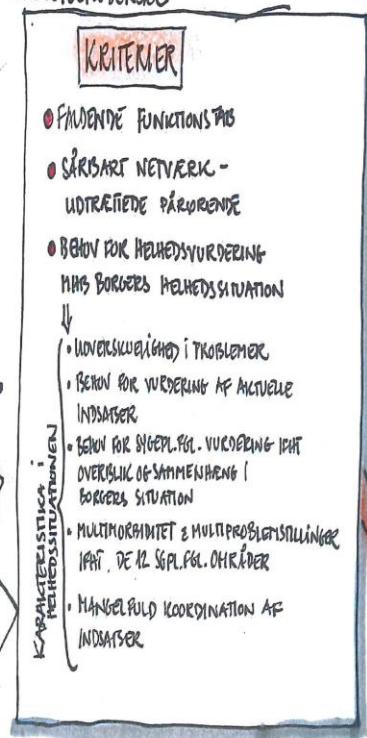 KRITERIER
• FALDENDE FUNKTIONSTAB
• SÅRBART NETVÆRK -
UDTRÆTTEDE PÅRØRENDE
• BEHOV FOR HELHEDSVURDERING
MHB BORGERS HELHEDSSITUATION
• UOVERSKUELIGHED I PROBLEMER
• BEHOV FOR VURDERING AF AKTUELLE
INDSATSER
• BEHOV FOR SYGEPL.FGL. VURDERING IFHT
OVERBLIK OG SAMMENHÆNG I
BORGERS SITUATION
• MULTIMORBIDITET & MULTIPROBLEMSTILLINGER
IFHT. DE 12 SGPL.FGL. OMRÅDER
• MANGELFULD KOORDINATION AF
INDSATSER
KARAKTERISTIKA I
HELHEDSSITUATIONEN